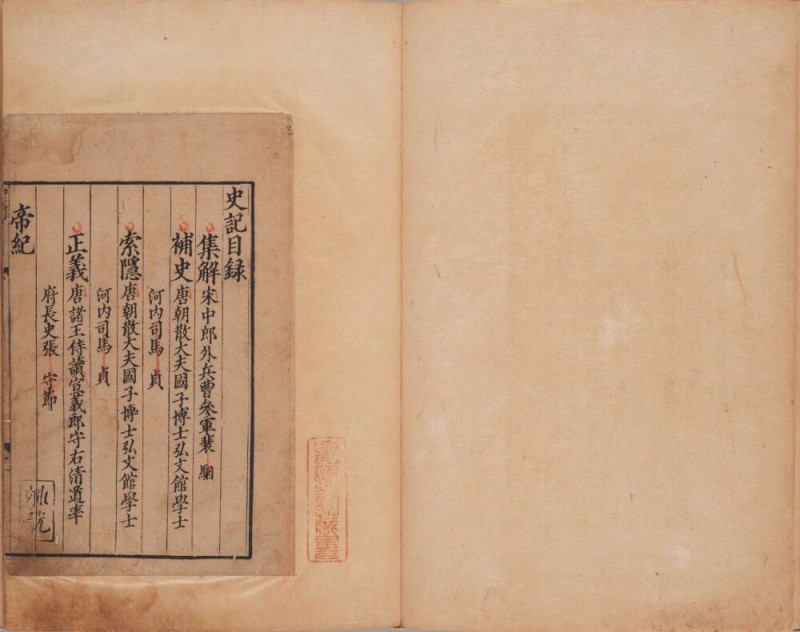 史記目録
集解 宋中郎外兵曹參軍裴 駰
補史 唐朝散大夫國子博士弘文館學士
河内司馬 貞
索隱 唐朝散大夫國子博士弘文館學士
河内司馬 貞
正義 唐諸王侍讀宣義郎守右清道率
府長史張 守節
帝紀